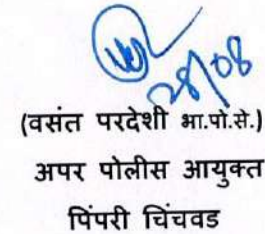 28/08
(वसंत परदेशी भा.पो.से.)
अपर पोलीस आयुक्त
पिंपरी चिंचवड